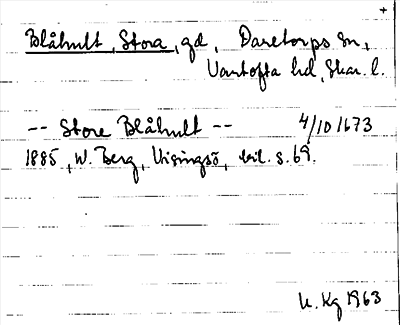 +
Blåhult, Stora, gd, Daretorps sn,
Vartofta hd, Skar. l.
-- Store Blåhult -- 4/10 1673
1885, W. Berg, Visingsö, bil. s. 69.
U. Kg 1963